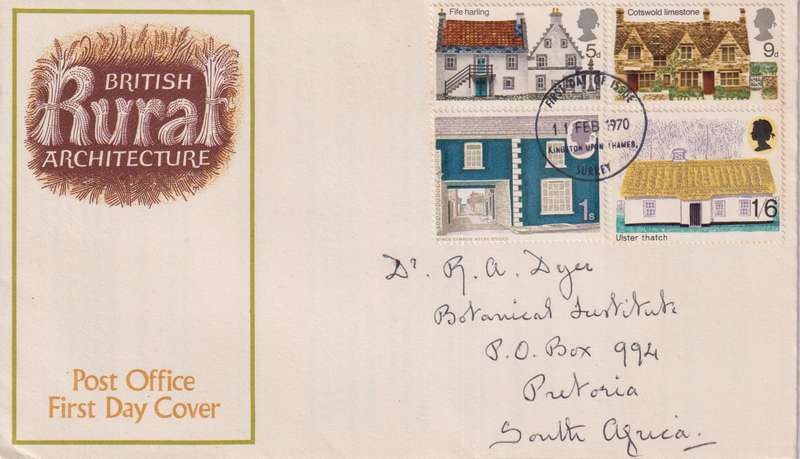 BRITISH
Rural
ARCHITECTURE
Post Office
First Day Cover
Fife harling
5d
Cotswold limestone
9d
1s
Ulster thatch
1/6
FIRST DAY OF ISSUE
11 FEB 1970
KINGSTON UPON THAMES,
SURREY
Dr. R. A. Dyer
Botanical Institute
P.O. Box 994
Pretoria
South Africa.